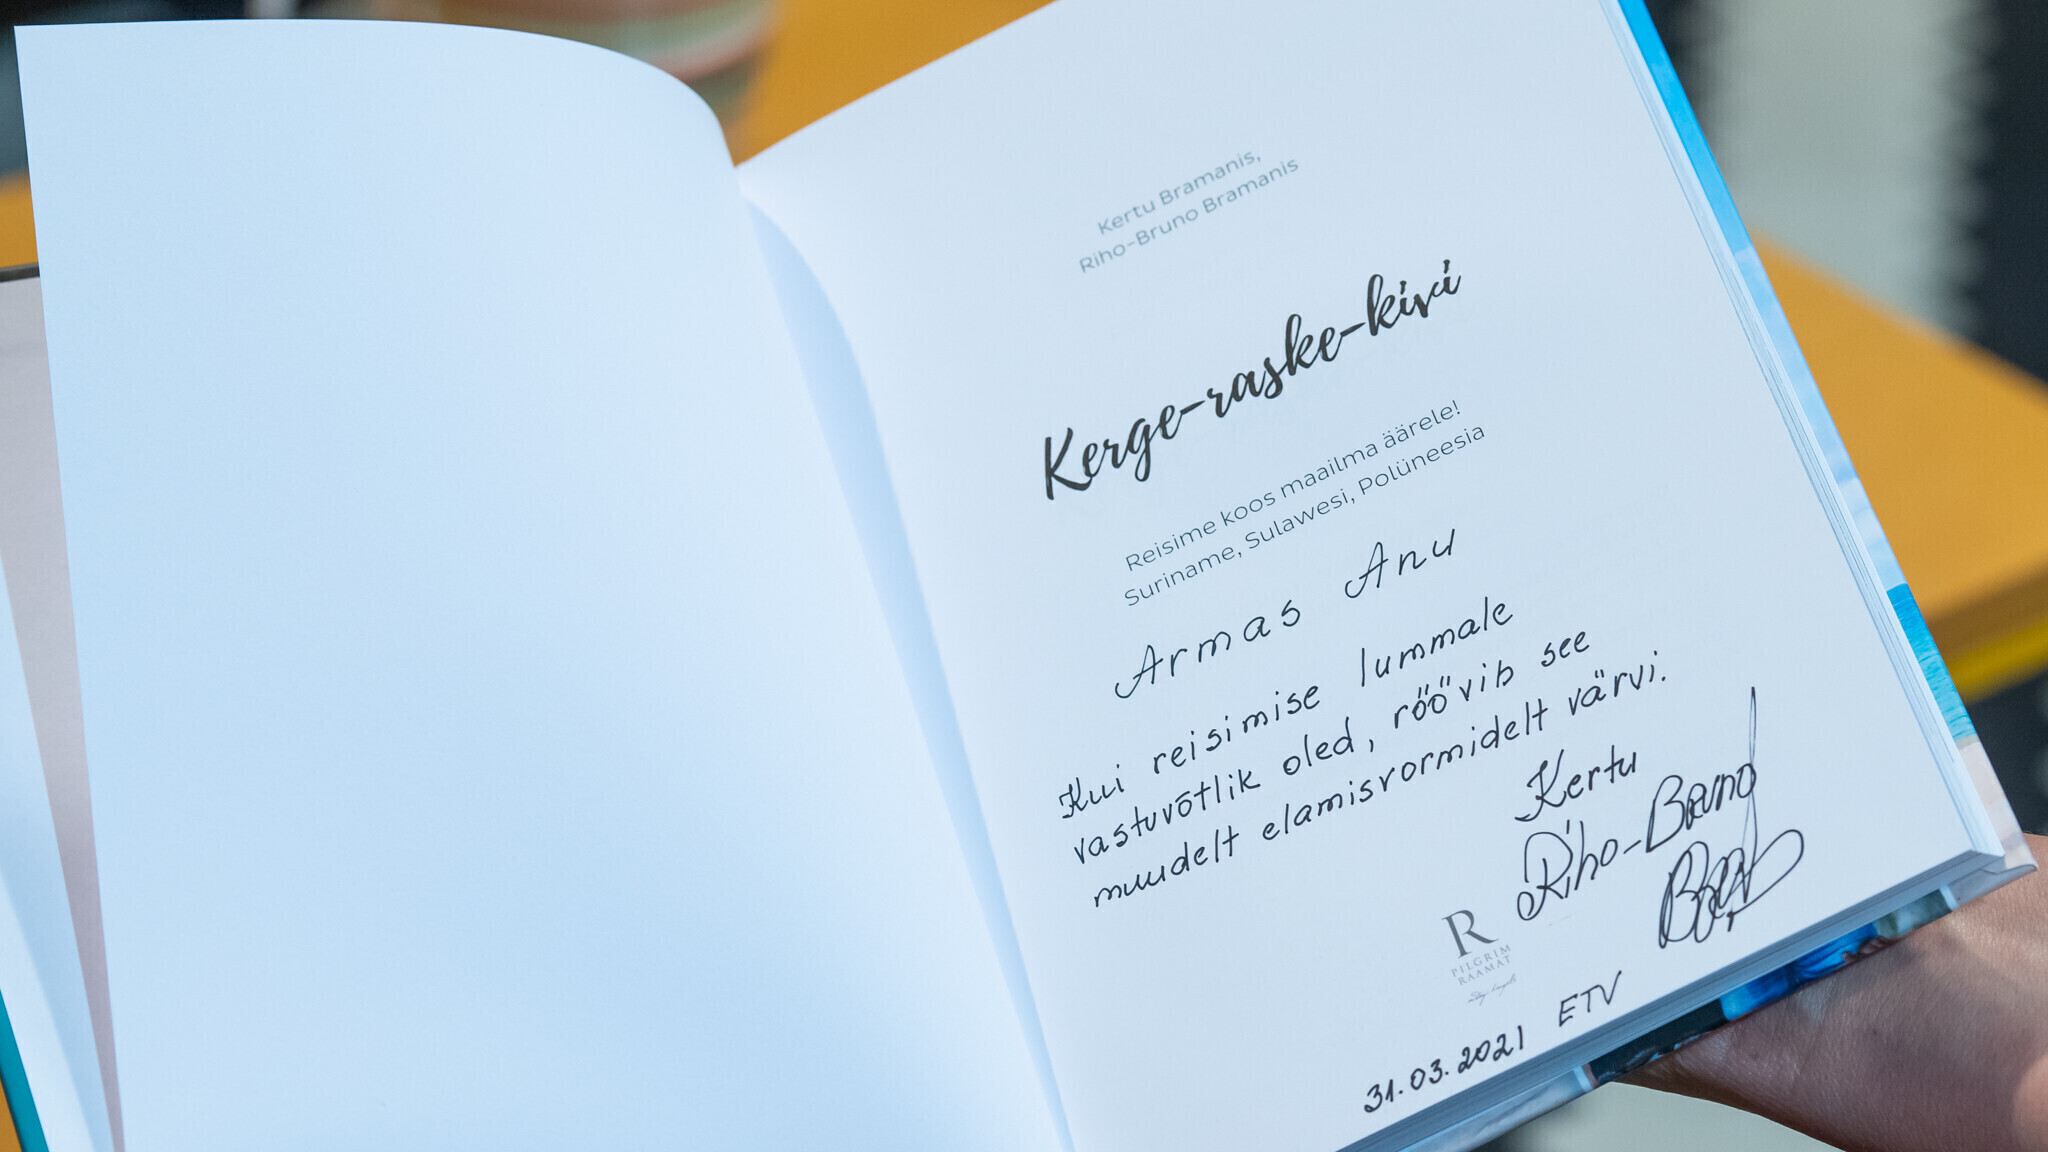 Kertu Bramanis,
Riho-Bruno Bramanis
Kerge-raske-kivi
Reisime koos maailma äärele!
Suriname, Sulawesi, Polüneesia
Armas Anu
Kui reisimise lummale
vastuvõtlik oled, röövib see
muudelt elamisvormidelt värvi.
Kertu
Riho-Bruno
R
PILGRIM
RAAMAT
31.03.2021 ETV